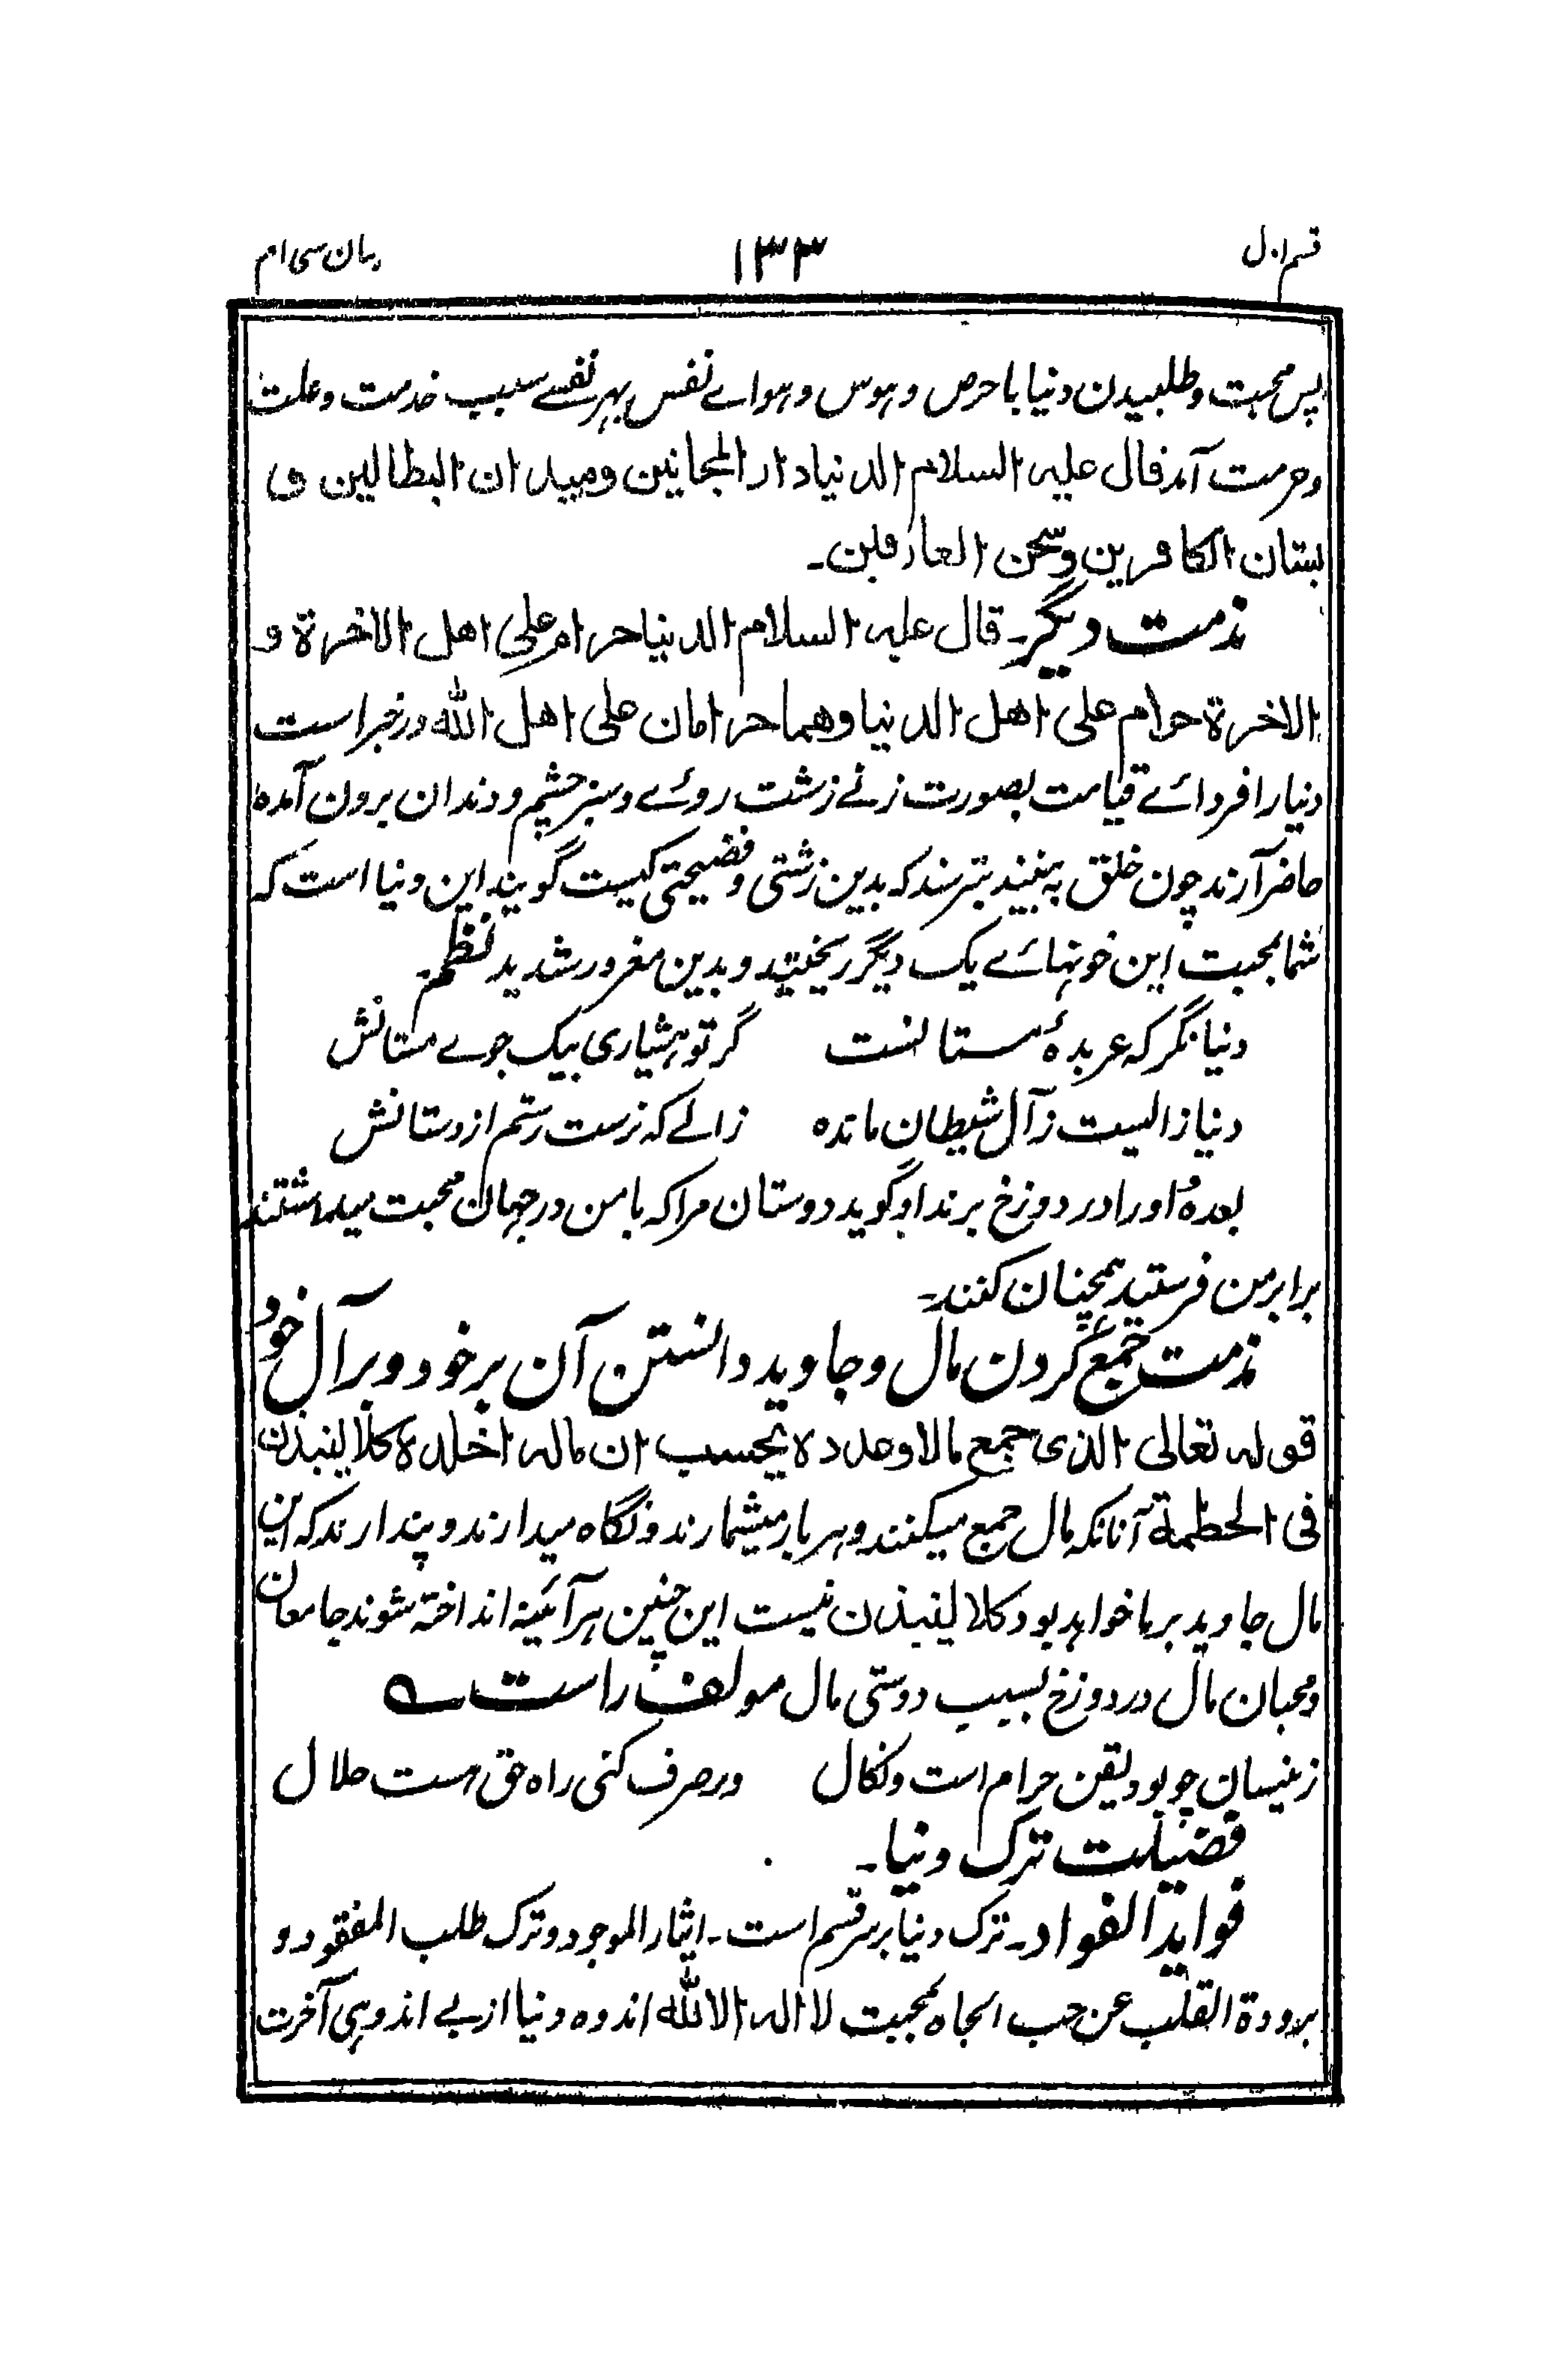 قسم اول ۱۳۳ بیان سی ام
پس محبت و طلبیدن دنیا با حرص و ہوس و ہواے نفس بہر نفسے سبب خدمت و علت
و حرمت آمد قال علیہ السلام الدنیا دار المجانین و میدان البطالین و
بستان الکافرین و سجن العارفین۔
مذمت دیگر۔ قال علیہ السلام الدنیا حرام علی اهل الاخرة و
الاخرة حرام علی اهل الدنیا وهما حرامان علی اهل الله در خبر است
دنیا را فردائے قیامت بصورت زنے زشت روئے و سبز چشم و دندان برون آمدہ
حاضر آرند چون خلق بہ بینند بترسند کہ بدین زشتی و فضیحتی کیست گویند این دنیا است کہ
شما بمحبت این خونہائے یک دیگر ریختید و بدین مغرور شدید نظم۔
دنیا نگر کہ عربدۂ مستانست گر تو ہشیاری بیک جوے مستانش
دنیا زالیست ز آل شیطان ماندہ زالے کہ نرست رستم از دستانش
بعدہٗ او را در دوزخ برند او گوید دوستان مرا کہ با من در جہان محبت میداشتند
برابر من فرستید ہمچنان کنند۔
مذمت جمع کردن مال و جاوید دانستن آن بر خود و بر آل خود
قولہ تعالی الذی جمع مالا وعددہ یحسب ان مالہ اخلدہ کلا لینبذن
فی الحطمة آنانکہ مال جمع میکنند و ہر بار میشمارند و نگاہ میدارند و پندارند کہ این
مال جاوید بر ما خواہد بود کلا لینبذن نیست این چنین ہر آئینہ انداختہ شوند جامعان
و محبان مال در دوزخ بسبب دوستی مال مولف راست ؎
زینسان چو بود یقین حرام است و نکال ور صرف کنی راہ حق ہست حلال
فضیلت ترک دنیا۔
فواید الفواد۔ ترک دنیا بر سہ قسم است۔ ایثار الموجود و ترک طلب المفقود و
برودة القلب عن حب الجاہ بمحبت لا الہ الا الله اندوہ دنیا از بے اندوہی آخرت